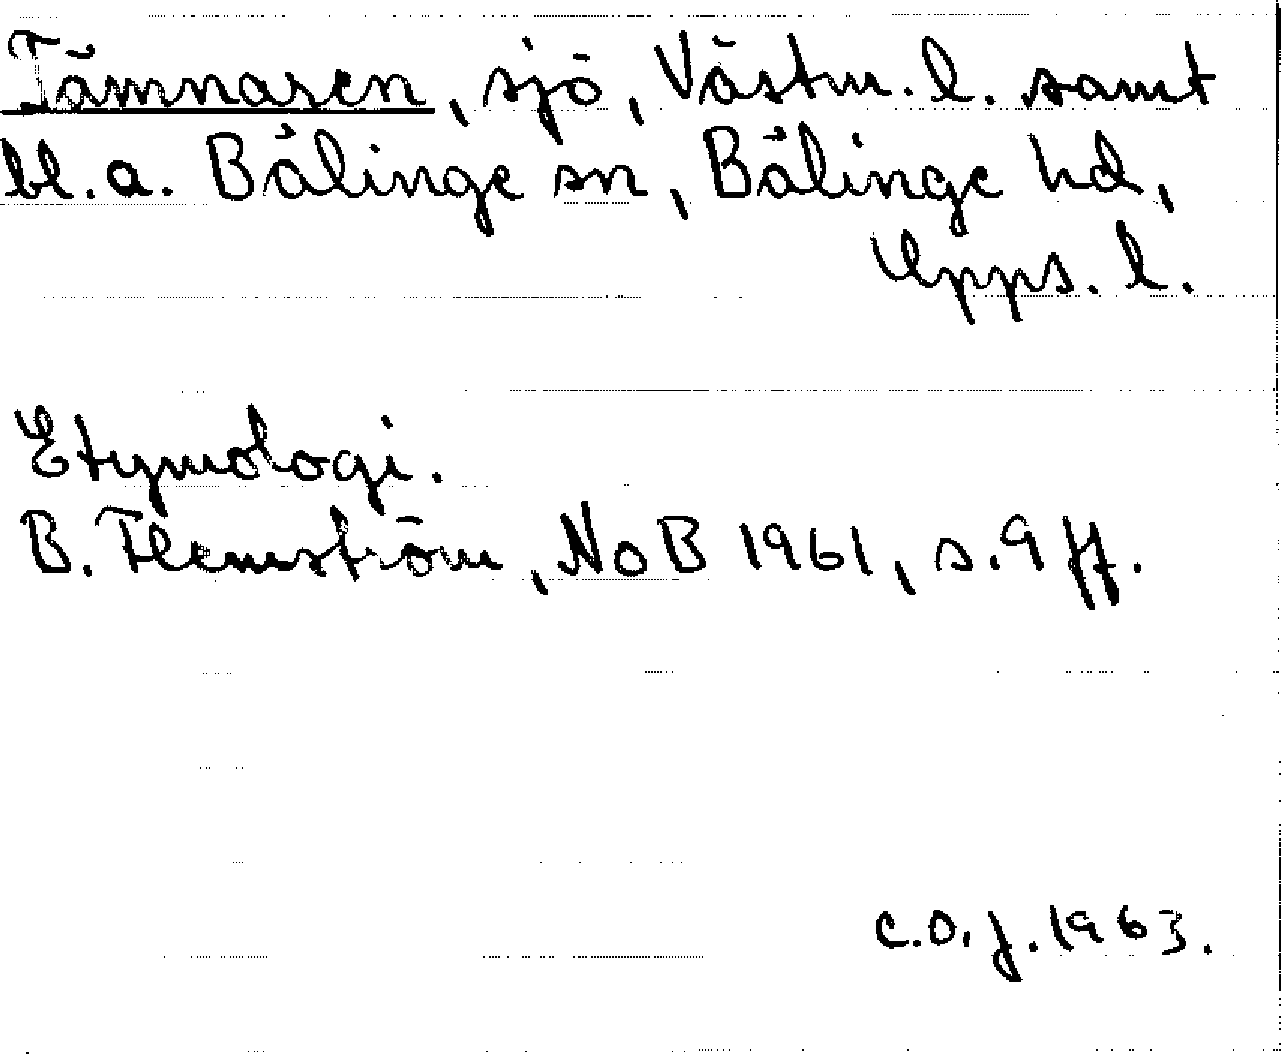 Tämnaren, sjö, Västm. l. samt
bl. a. Bälinge sn, Bälinge hd,
Upps. l.
Etymologi.
B. Flemström, NoB 1961, s. 9 ff.
C.O.J. 1963.